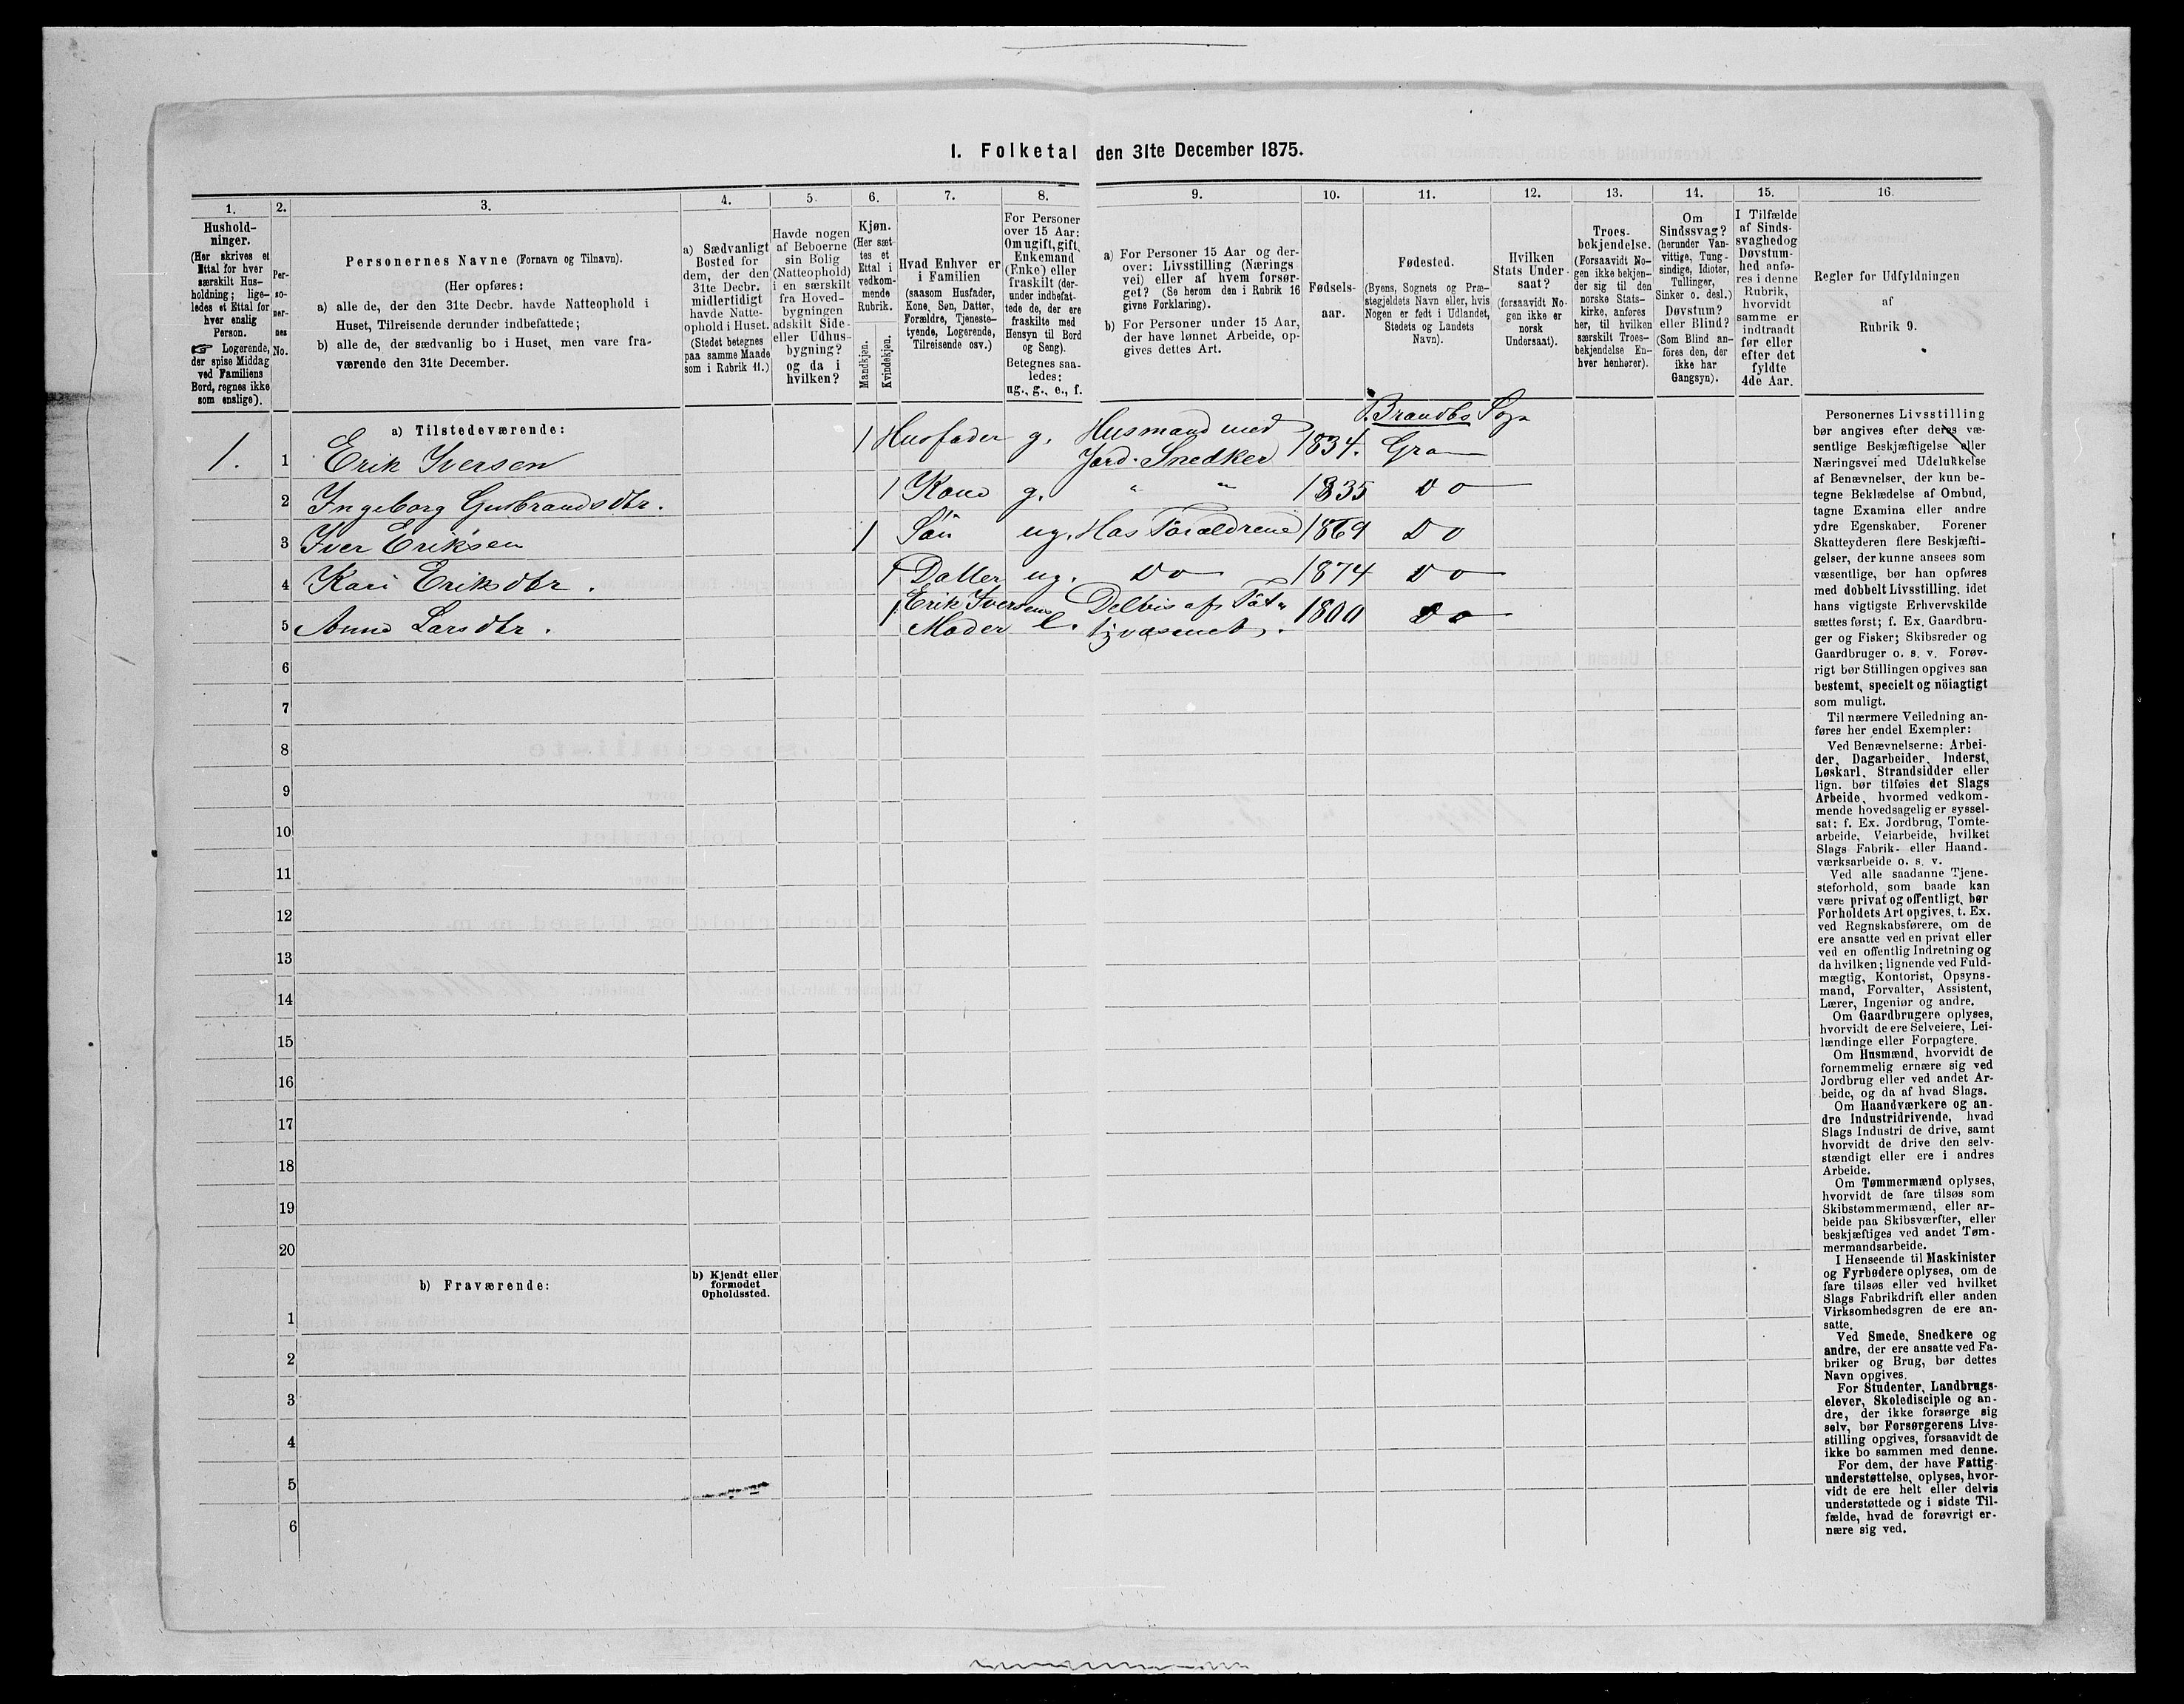 I. Folketal den 31te December 1875.
1.
2.
3.
4.
5.
6.
7.
8.
9.
10.
11.
12.
13.
14.
15.
16.
Hushold-
ninger.
(Her skrives et
Ettal for hver
særskilt Hus-
holdning; lige-
ledes et Ettal for
hver enslig
Person.
☞ Logerende,
der spise Middag
ved Familiens
Bord, regnes ikke
som enslige).
Per-
so-
ner-
nes
No.
Personernes Navne (Fornavn og Tilnavn).
(Her opføres:
a) alle de, der den 31te Decbr. havde Natteophold i
Huset, Tilreisende derunder indbefattede;
b) alle de, der sædvanlig bo i Huset, men vare fra-
værende den 31te December.
a) Sædvanligt
Bosted for
dem, der den
31te Decbr.
midlertidigt
havde Natte-
ophold i Huset.
(Stedet betegnes
paa samme Maade
som i Rubrik 11.)
Havde nogen
af Beboerne
sin Bolig
(Natteophold)
i en særskilt
fra Hoved-
bygningen
adskilt Side-
eller Udhus-
bygning?
og da i
hvilken?
Kjøn.
(Her sæt-
tes et
Ettal i
vedkom-
mende
Rubrik.
Mandkjøn.
Kvindekjøn.
Hvad Enhver er
i Familien
(saasom Husfader,
Kone, Søn, Datter,
Forældre, Tjeneste-
tyende, Logerende,
Tilreisende osv.)
For Personer
over 15 Aar:
Om ugift, gift,
Enkemand
(Enke) eller
fraskilt (der-
under indbefat-
tede de, der ere
fraskilte med
Hensyn til Bord
og Seng).
Betegnes saa-
ledes:
ug., g., e., f.
a) For Personer 15 Aar og der-
over: Livsstilling (Nærings
vei) eller af hvem forsør-
get? (Se herom den i Rubrik 16
givne Forklaring).
b) For Personer under 15 Aar,
der have lønnet Arbeide, op-
gives dettes Art.
Fødsels-
aar.
Fødested.
(Byens, Sognets og Præ-
stegjeldets Navn eller, hvis
Nogen er født i Udlandet,
Stedets og Landets
Navn).
Hvilken
Stats Under-
saat?
(forsaavidt No-
gen ikke er
norsk
Undersaat).
Troes-
bekjendelse.
(Forsaavidt No-
gen ikke bekjen-
der sig til den
norske Stats-
kirke, anføres
her, til hvilken
særskilt Troes-
bekjendelse En-
hver henhører).
Om
Sindssvag?
(herunder Van-
vittige, Tung-
sindige, Idioter,
Tullinger,
Sinker o. desl.)
Døvstum?
eller Blind?
(Som Blind an-
føres den, der
ikke har
Gangsyn).
I Tilfælde
af Sinds-
svaghed og
Døvstum-
hed anfø-
res i denne
Rubrik,
hvorvidt
samme er
indtraadt
før eller
efter det
fyldte
4de Aar.
Regler for Udfyldningen
af
Rubrik 9.
a) Tilstedeværende:
Brandbo Sogn
1. 1 Erik Iversen 1 Husfader g. Husmand med
Jord. Snedker 1834. Gran
2 Ingeborg Gulbrandsdtr. 1 Kone g. " " 1835 Do
3 Iver Eriksen 1 Søn ug. Hos Forældrene 1869 Do
4 Kari Eriksdtr. 1 Datter ug. Do 1874 Do
5 Anne Larsdtr. 1 Erik Iversens
Moder e. Delvis af Fat-
tigvæsenet. 1800 Do
6
7
8
9
10
11
12
13
14
15
16
17
18
19
20
b) Fraværende:
b) Kjendt eller
formodet
Opholdssted.
1
2
3
4
5
6
Personernes Livsstilling
bør angives efter deres væ-
sentlige Beskjæftigelse eller
Næringsvei med Udelukkelse
af Benævnelser, der kun be-
tegne Beklædelse af Ombud,
tagne Examina eller andre
ydre Egenskaber. Forener
Skatteyderen flere Beskjæfti-
gelser, der kunne ansees som
væsentlige, bør han opføres
med dobbelt Livsstilling, idet
hans vigtigste Erhvervskilde
sættes først; f. Ex. Gaardbru-
ger og Fisker; Skibsreder og
Gaardbruger o. s. v. Forøv-
rigt bør Stillingen opgives saa
bestemt, specielt og nöiagtigt
som muligt.
Til nærmere Veiledning an-
føres her endel Exempler:
Ved Benævnelserne: Arbei-
der, Dagarbeider, Inderst,
Løskarl, Strandsidder eller
lign. bør tilføies det Slags
Arbeide, hvormed vedkom-
mende hovedsagelig er syssel-
sat; f. Ex. Jordbrug, Tomte-
arbeide, Veiarbeide, hvilket
Slags Fabrik- eller Haand-
værksarbeide o. s. v.
Ved alle saadanne Tjene-
steforhold, som baade kan
være privat og offentligt, bør
Forholdets Art opgives, t. Ex.
ved Regnskabsførere, om de
ere ansatte ved en privat eller
ved en offentlig Indretning og
da hvilken; lignende ved Fuld-
mægtig, Kontorist, Opsyns-
mand, Forvalter, Assistent,
Lærer, Ingeniør og andre.
Om Gaardbrugere oplyses,
hvorvidt de ere Selveiere, Lei-
lændinge eller Forpagtere.
Om Husmænd, hvorvidt de
fornemmelig ernære sig ved
Jordbrug eller ved andet Ar-
beide, og da af hvad Slags.
Om Haandværkere og an-
dre Industridrivende, hvad
Slags Industri de drive, samt
hvorvidt de drive den selv-
stændigt eller ere i andres
Arbeide.
Om Tømmermænd oplyses,
hvorvidt de fare tilsøs som
Skibstømmermænd, eller ar-
beide paa Skibsværfter, eller
beskjæftiges ved andet Tøm-
mermandsarbeide.
I Henseende til Maskinister
og Fyrbødere oplyses, om de
fare tilsøs eller ved hvilket
Slags Fabrikdrift eller anden
Virksomhedsgren de ere an-
satte.
Ved Smede, Snedkere og
andre, der ere ansatte ved Fa-
briker og Brug, bør dettes
Navn opgives.
For Studenter, Landbrugs-
elever, Skoledisciple og an-
dre, der ikke forsørge sig
selv, bør Forsørgerens Livs-
stilling opgives, forsaavidt de
ikke bo sammen med denne.
For dem, der have Fattig-
understøttelse, oplyses, hvor-
vidt de ere helt eller delvis
understøttede og i sidste Til-
fælde, hvad de forøvrigt er-
nære sig ved.